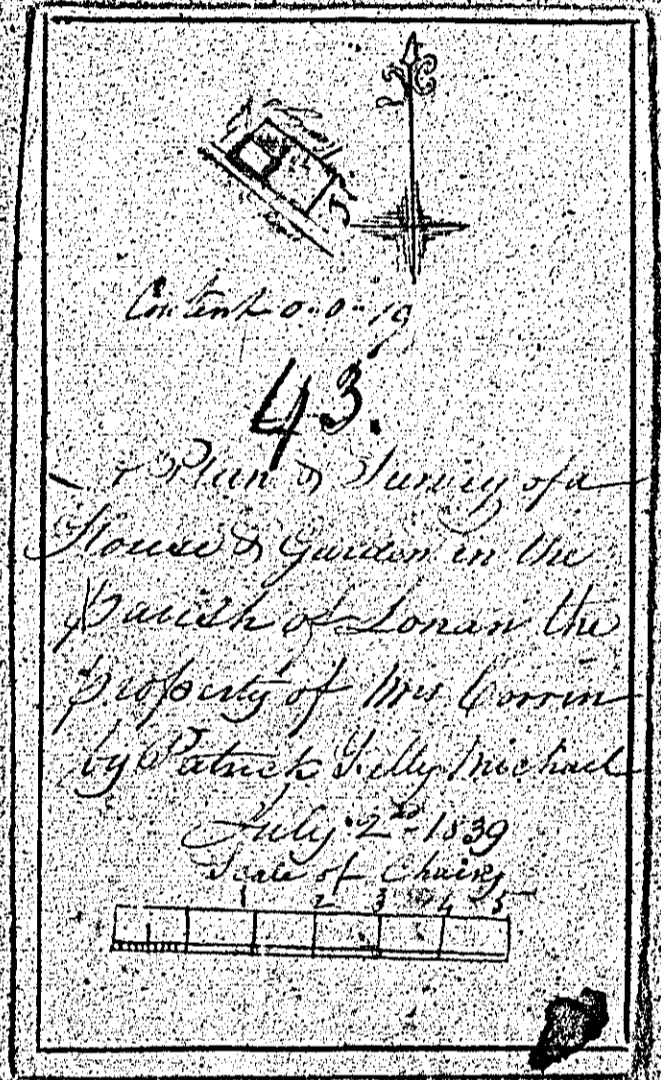 Content 0..0..19
43.
A Plan & Survey of a
House & Garden in the
Parish of Lonan the
property of Mrs Corrin
by Patrick Michael
July 2nd 1839
Scale of Chains
1 2 3 4 5